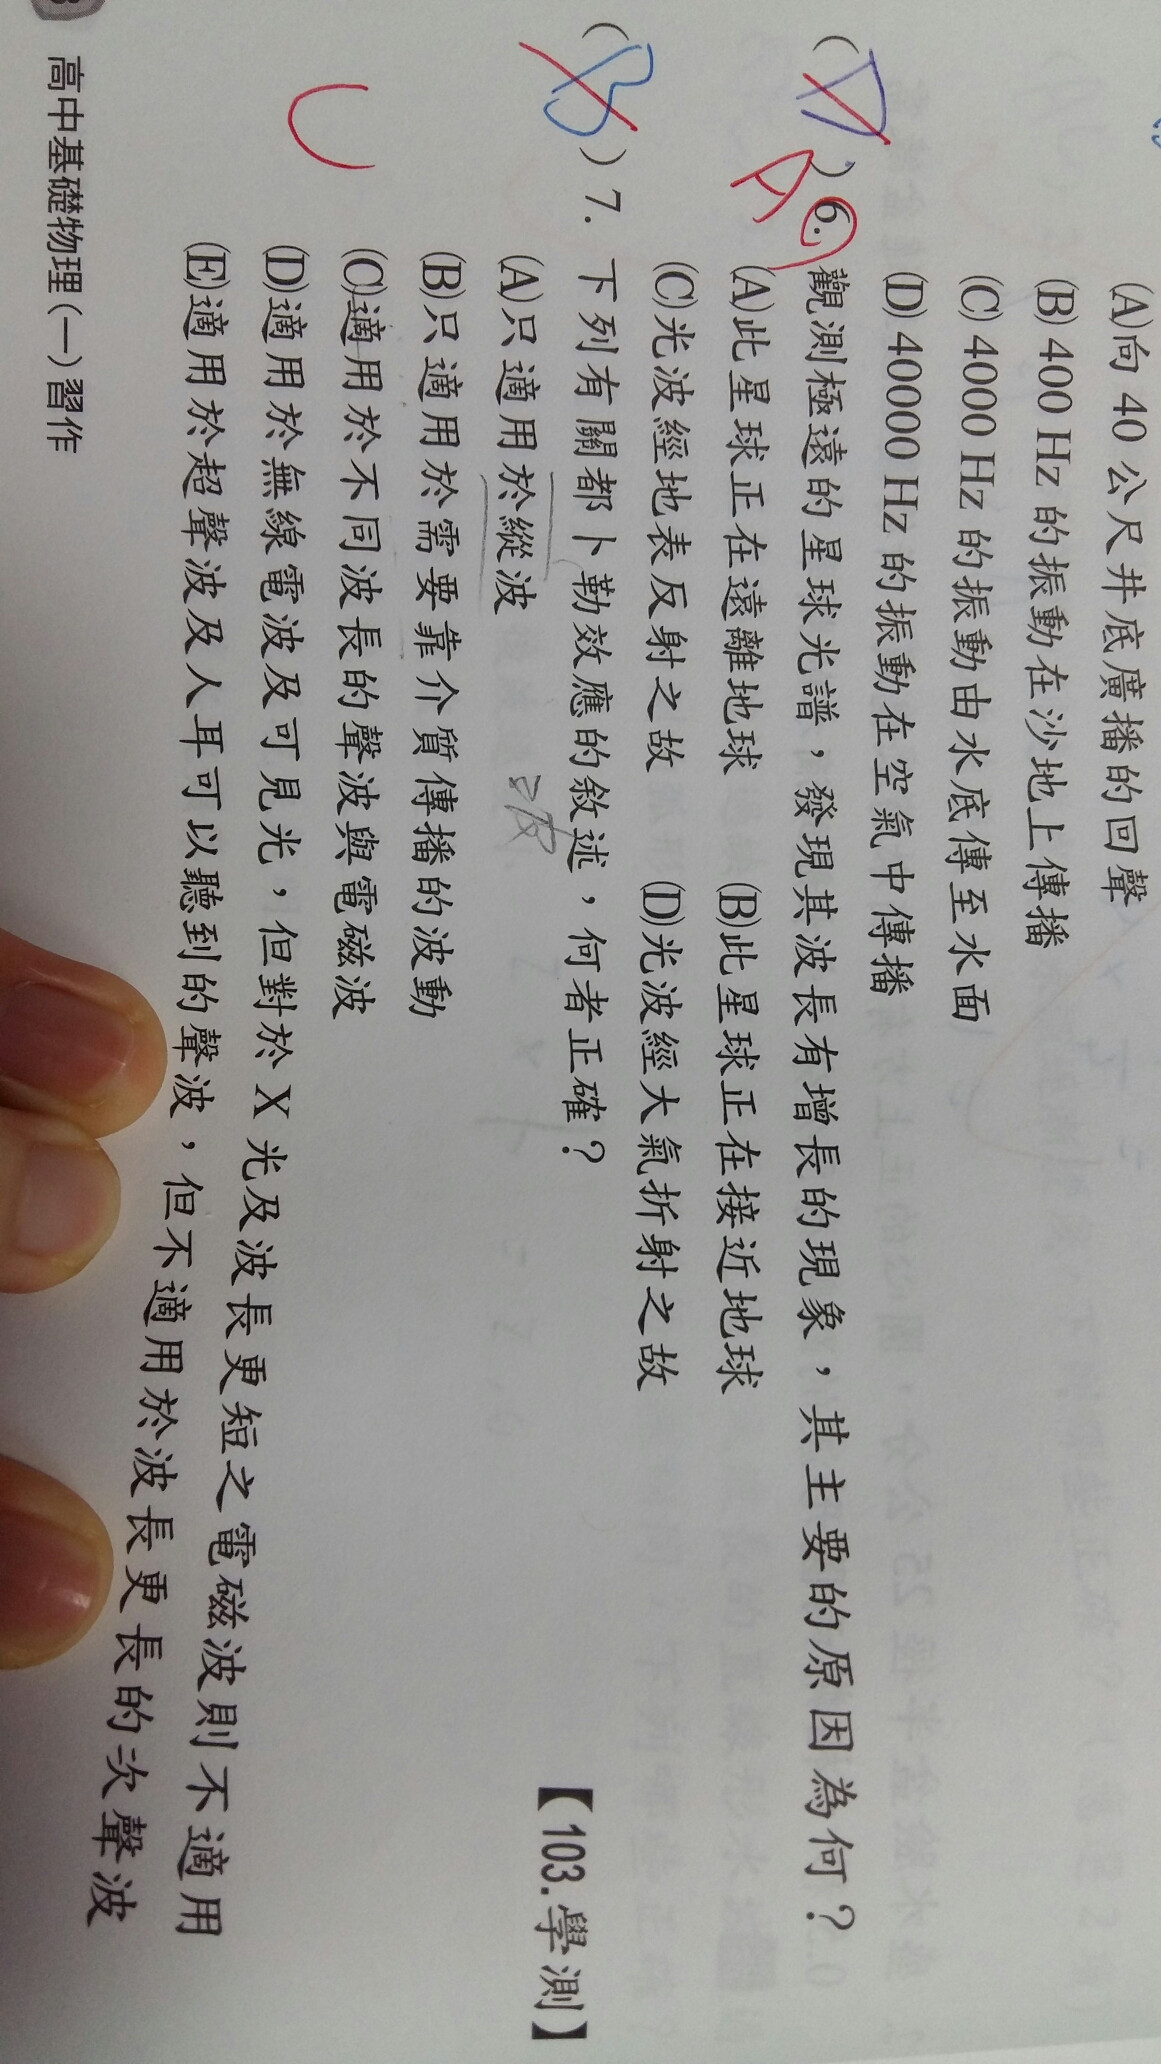 (A)向 40 公尺井底廣播的回聲
(B) 400 Hz 的振動在沙地上傳播
(C) 4000 Hz 的振動由水底傳至水面
(D) 40000 Hz 的振動在空氣中傳播
( D ) 6. 觀測極遠的星球光譜，發現其波長有增長的現象，其主要的原因為何？
A
(A)此星球正在遠離地球 (B)此星球正在接近地球
(C)光波經地表反射之故 (D)光波經大氣折射之故
( B ) 7. 下列有關都卜勒效應的敘述，何者正確？
【103.學測】
(A)只適用於縱波
(B)只適用於需要靠介質傳播的波動
C
(C)適用於不同波長的聲波與電磁波
(D)適用於無線電波及可見光，但對於 X 光及波長更短之電磁波則不適用
(E)適用於超聲波及人耳可以聽到的聲波，但不適用於波長更長的次聲波
高中基礎物理(一)習作